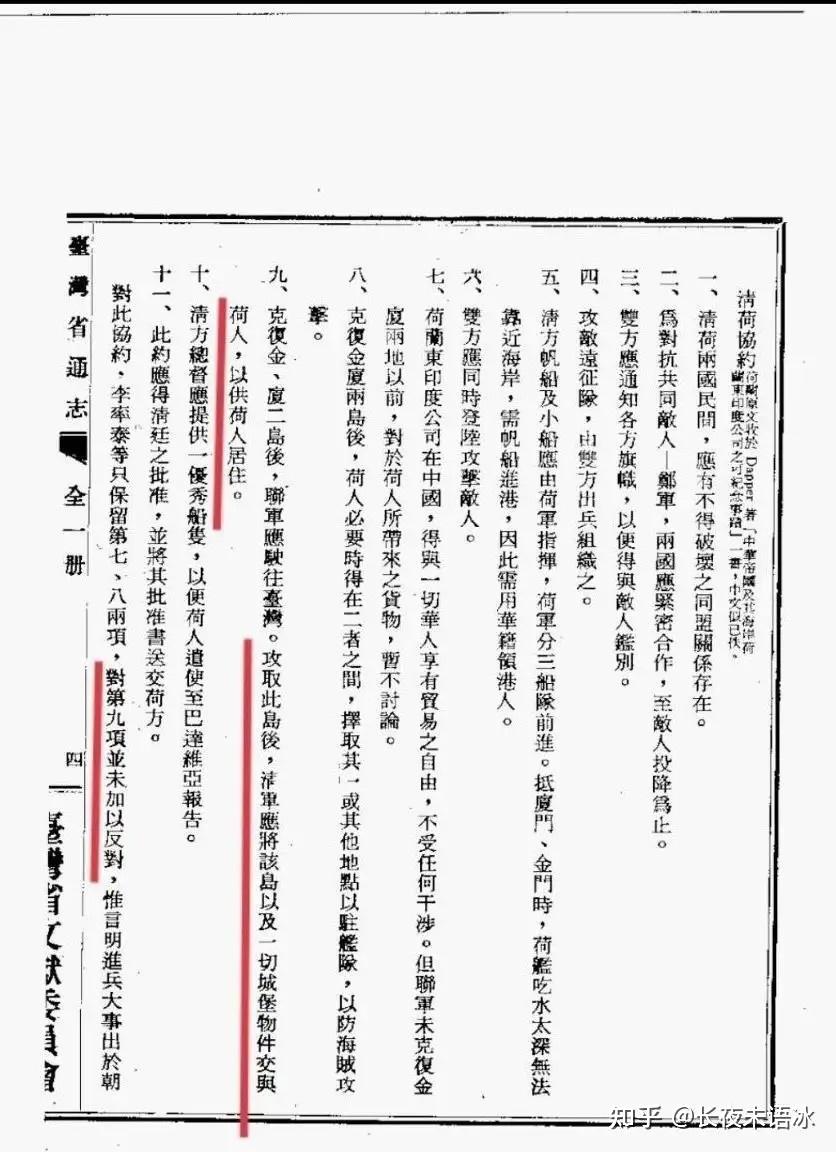 清荷協約 荷蘭原文收於 Dapper 著「中華帝國及其海岸荷
蘭東印度公司之可紀念事蹟」一書，中文似已佚。
一、清荷兩國民間，應有不得破壞之同盟關係存在。
二、爲對抗共同敵人—鄭軍，兩國應緊密合作，至敵人投降爲止。
三、雙方應通知各方旗幟，以便得與敵人鑑別。
四、攻敵遠征隊，由雙方出兵組織之。
五、清方帆船及小船應由荷軍指揮，荷軍分三船隊前進。抵廈門、金門時，荷艦吃水太深無法
靠近海岸，需帆船進港，因此需用華籍領港人。
六、雙方應同時登陸攻擊敵人。
七、荷蘭東印度公司在中國，得與一切華人享有貿易之自由，不受任何干涉。但聯軍未克復金
廈兩地以前，對於荷人所帶來之貨物，暫不討論。
八、克復金廈兩島後，荷人必要時得在二者之間，擇取其一或其他地點以駐艦隊，以防海賊攻
擊。
九、克復金、廈二島後，聯軍應駛往臺灣。攻取此島後，清軍應將該島以及一切城堡物件交與
荷人，以供荷人居住。
十、清方總督應提供一優秀船隻，以便荷人遣使至巴達維亞報告。
十一、此約應得清廷之批准，並將其批准書送交荷方。
對此協約，李率泰等只保留第七、八兩項，對第九項並未加以反對，惟言明進兵大事出於朝
臺灣省通志 全一册
四
臺灣省文獻委員會
知乎 @长夜未语冰